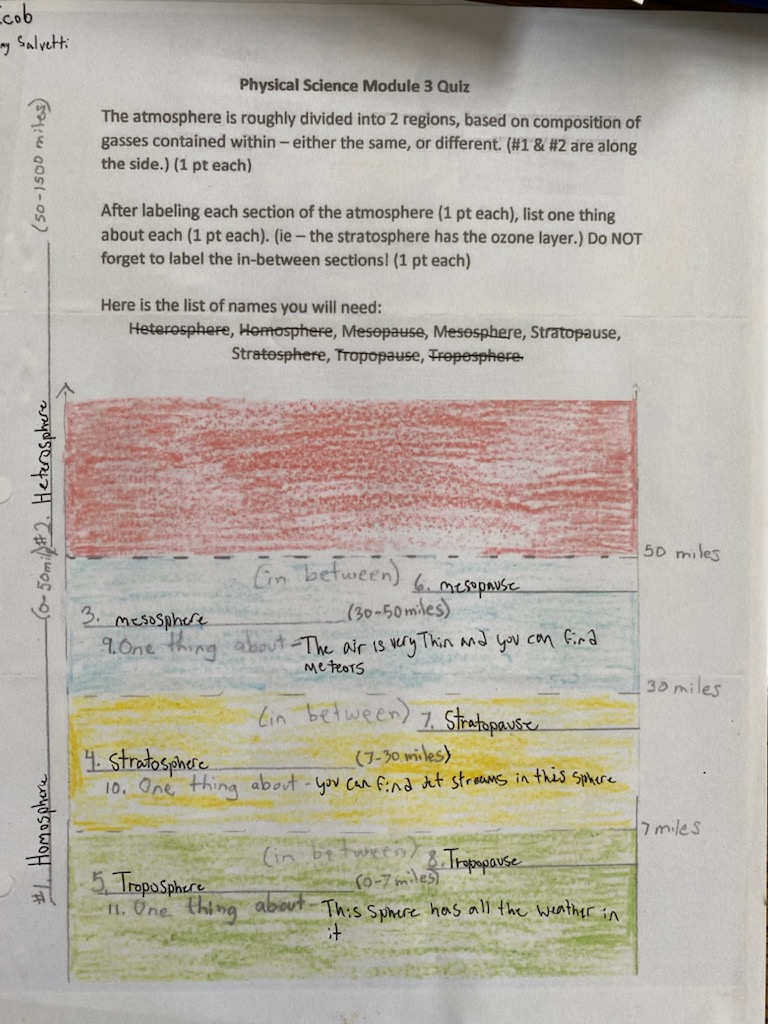 cob
Salvetti
Physical Science Module 3 Quiz
The atmosphere is roughly divided into 2 regions, based on composition of
gasses contained within – either the same, or different. (#1 & #2 are along
the side.) (1 pt each)
After labeling each section of the atmosphere (1 pt each), list one thing
about each (1 pt each). (ie – the stratosphere has the ozone layer.) Do NOT
forget to label the in-between sections! (1 pt each)
Here is the list of names you will need:
Heterosphere, Homosphere, Mesopause, Mesosphere, Stratopause,
Stratosphere, Tropopause, Troposphere.
(50-1500 miles)
#2. Heterosphere
(0-50mi)
#1. Homosphere
50 miles
(in between) 6. mesopause
3. mesosphere (30-50miles)
9. One thing about - The air is very Thin and you can find
meteors
30 miles
(in between) 7. Stratopause
4. Stratosphere (7-30 miles)
10. One thing about - you can find Jet streams in this sphere
7 miles
(in between) 8. Tropopause
5. Troposphere (0-7 miles)
11. One thing about - This sphere has all the weather in
it